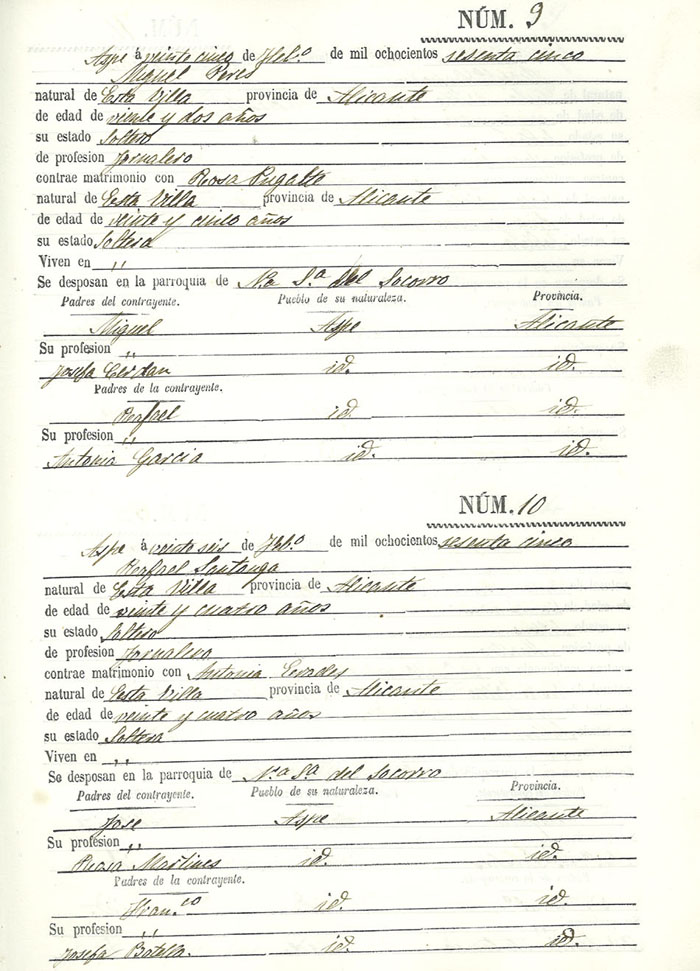 NÚM. 9
Aspe á veinte cinco de Feb.o de mil ochocientos sesenta cinco
Miguel Peres
natural de Esta Villa provincia de Alicante
de edad de veinte y dos años
su estado Soltero
de profesion Jornalero
contrae matrimonio con Rosa Pugalte
natural de Esta Villa provincia de Alicante
de edad de veinte y cinco años
su estado Soltera
Viven en ,,
Se desposan en la parroquia de N.a S.a del Socorro
Padres del contrayente. Pueblo de su naturaleza. Provincia.
Miguel Aspe Alicante
Su profesion ,,
Josefa Cerdan id. id.
Padres de la contrayente.
Rafael id. id.
Su profesion ,,
Antonia Garcia id. id.
NÚM. 10
Aspe á veinte seis de Feb.o de mil ochocientos sesenta cinco
Rafael Santonga
natural de Esta Villa provincia de Alicante
de edad de veinte y cuatro años
su estado Soltero
de profesion Jornalero
contrae matrimonio con Antonia
natural de Esta Villa provincia de Alicante
de edad de veinte y cuatro años
su estado Soltera
Viven en ,,
Se desposan en la parroquia de N.a S.a del Socorro
Padres del contrayente. Pueblo de su naturaleza. Provincia.
Jose Aspe Alicante
Su profesion ,,
Rosa Martines id. id.
Padres de la contrayente.
Fran.co id. id.
Su profesion ,,
Josefa Botella. id. id.